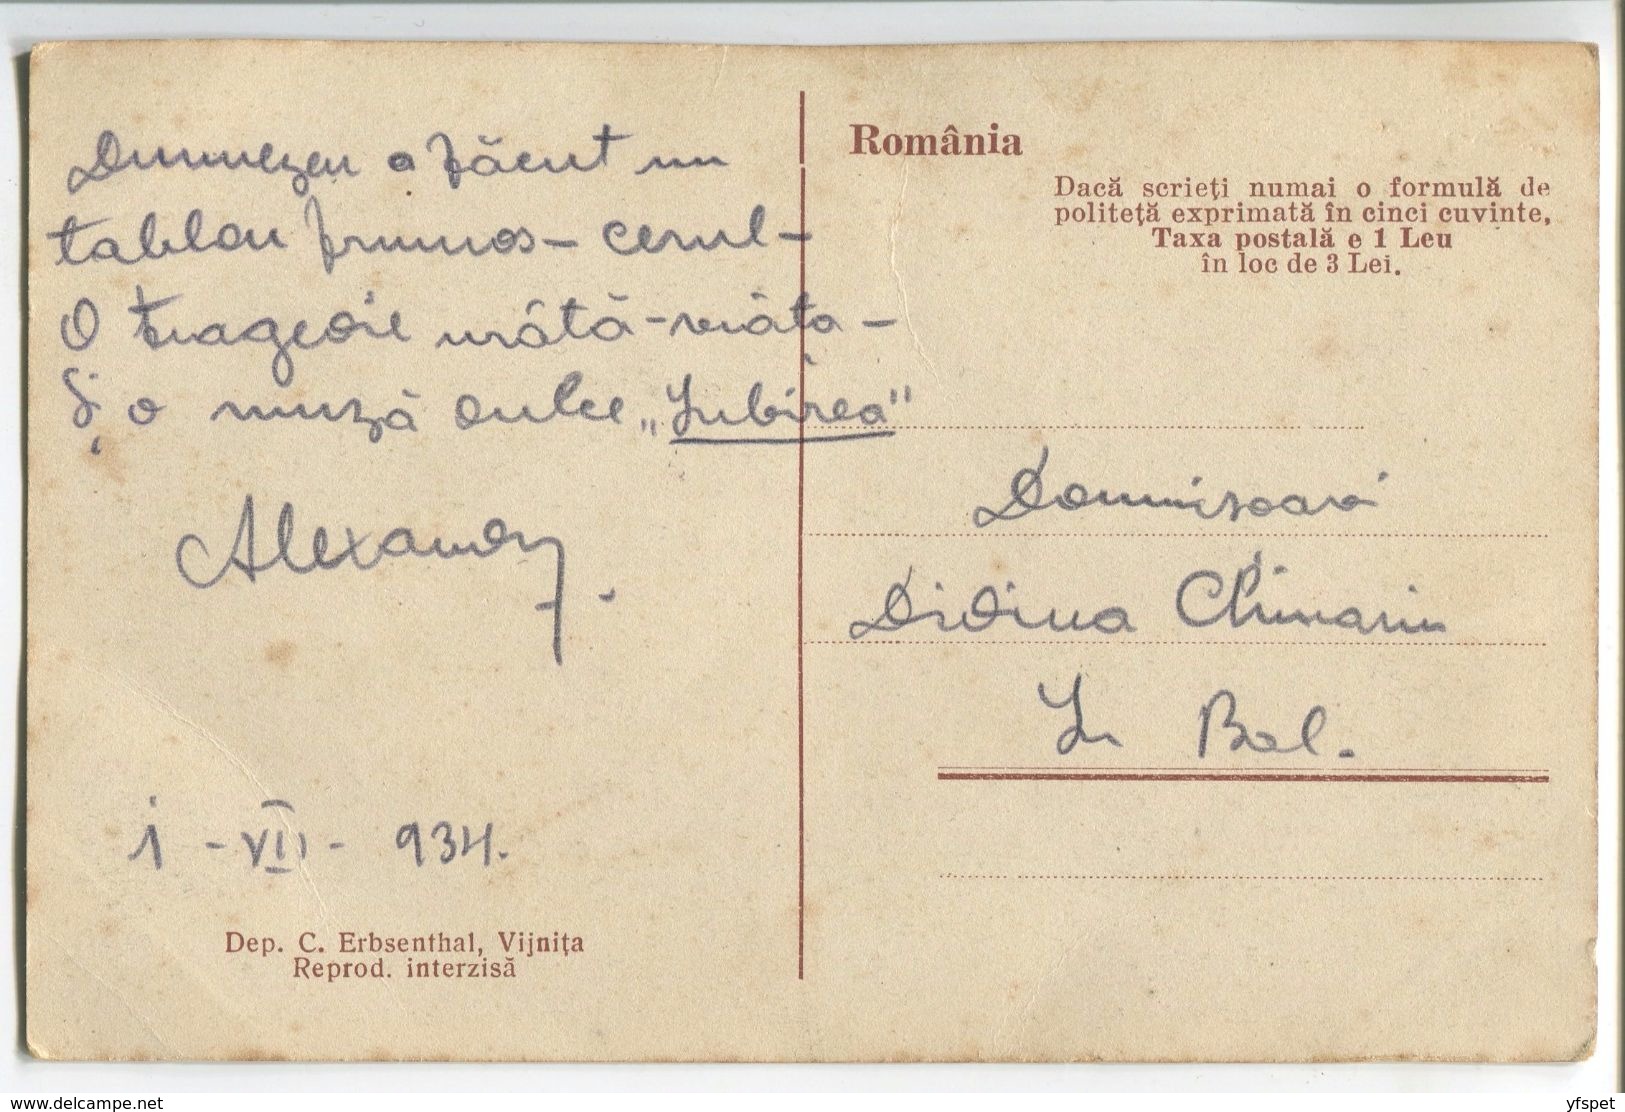 Dumnezeu a făcut un
tablou frumos - cerul -
O tragedie urâtă - viața -
Și o muză dulce „Iubirea"
Alexandru.
1 - VII - 934.
Dep. C. Erbsenthal, Vijnița
Reprod. interzisă
România
Dacă scrieți numai o formulă de
politeță exprimată în cinci cuvinte,
Taxa postală e 1 Leu
în loc de 3 Lei.
Domnișoarei
Didina
In Bol.
www.delcampe.net
yfspet